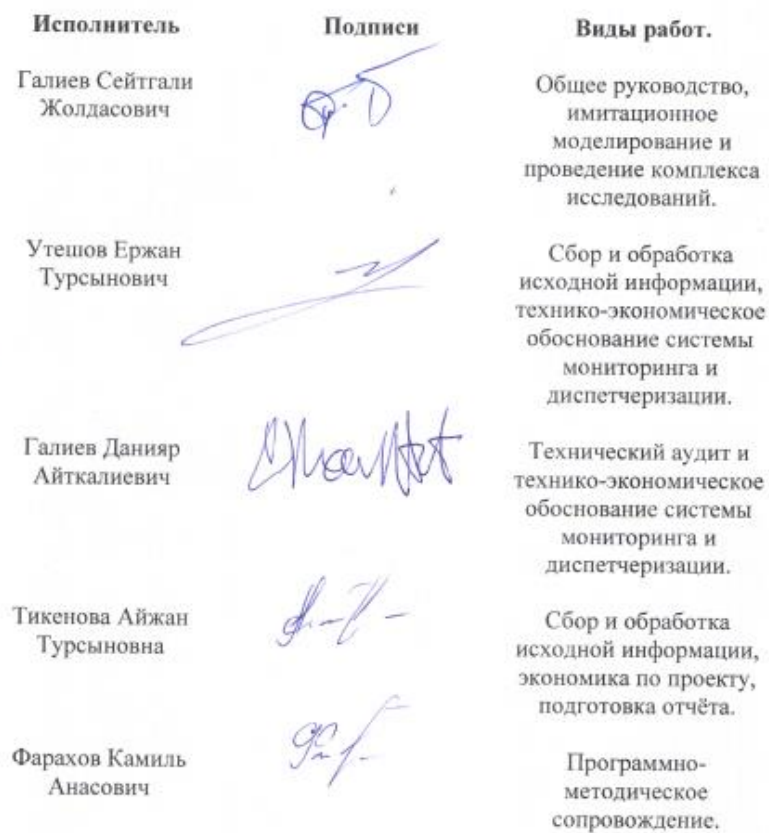 Исполнитель Подписи Виды работ.
Галиев Сейтгали
Жолдасович
Общее руководство,
имитационное
моделирование и
проведение комплекса
исследований.
Утешов Ержан
Турсынович
Сбор и обработка
исходной информации,
технико-экономическое
обоснование системы
мониторинга и
диспетчеризации.
Галиев Данияр
Айткалиевич
Технический аудит и
технико-экономическое
обоснование системы
мониторинга и
диспетчеризации.
Тикенова Айжан
Турсыновна
Сбор и обработка
исходной информации,
экономика по проекту,
подготовка отчёта.
Фарахов Камиль
Анасович
Программно-
методическое
сопровождение.